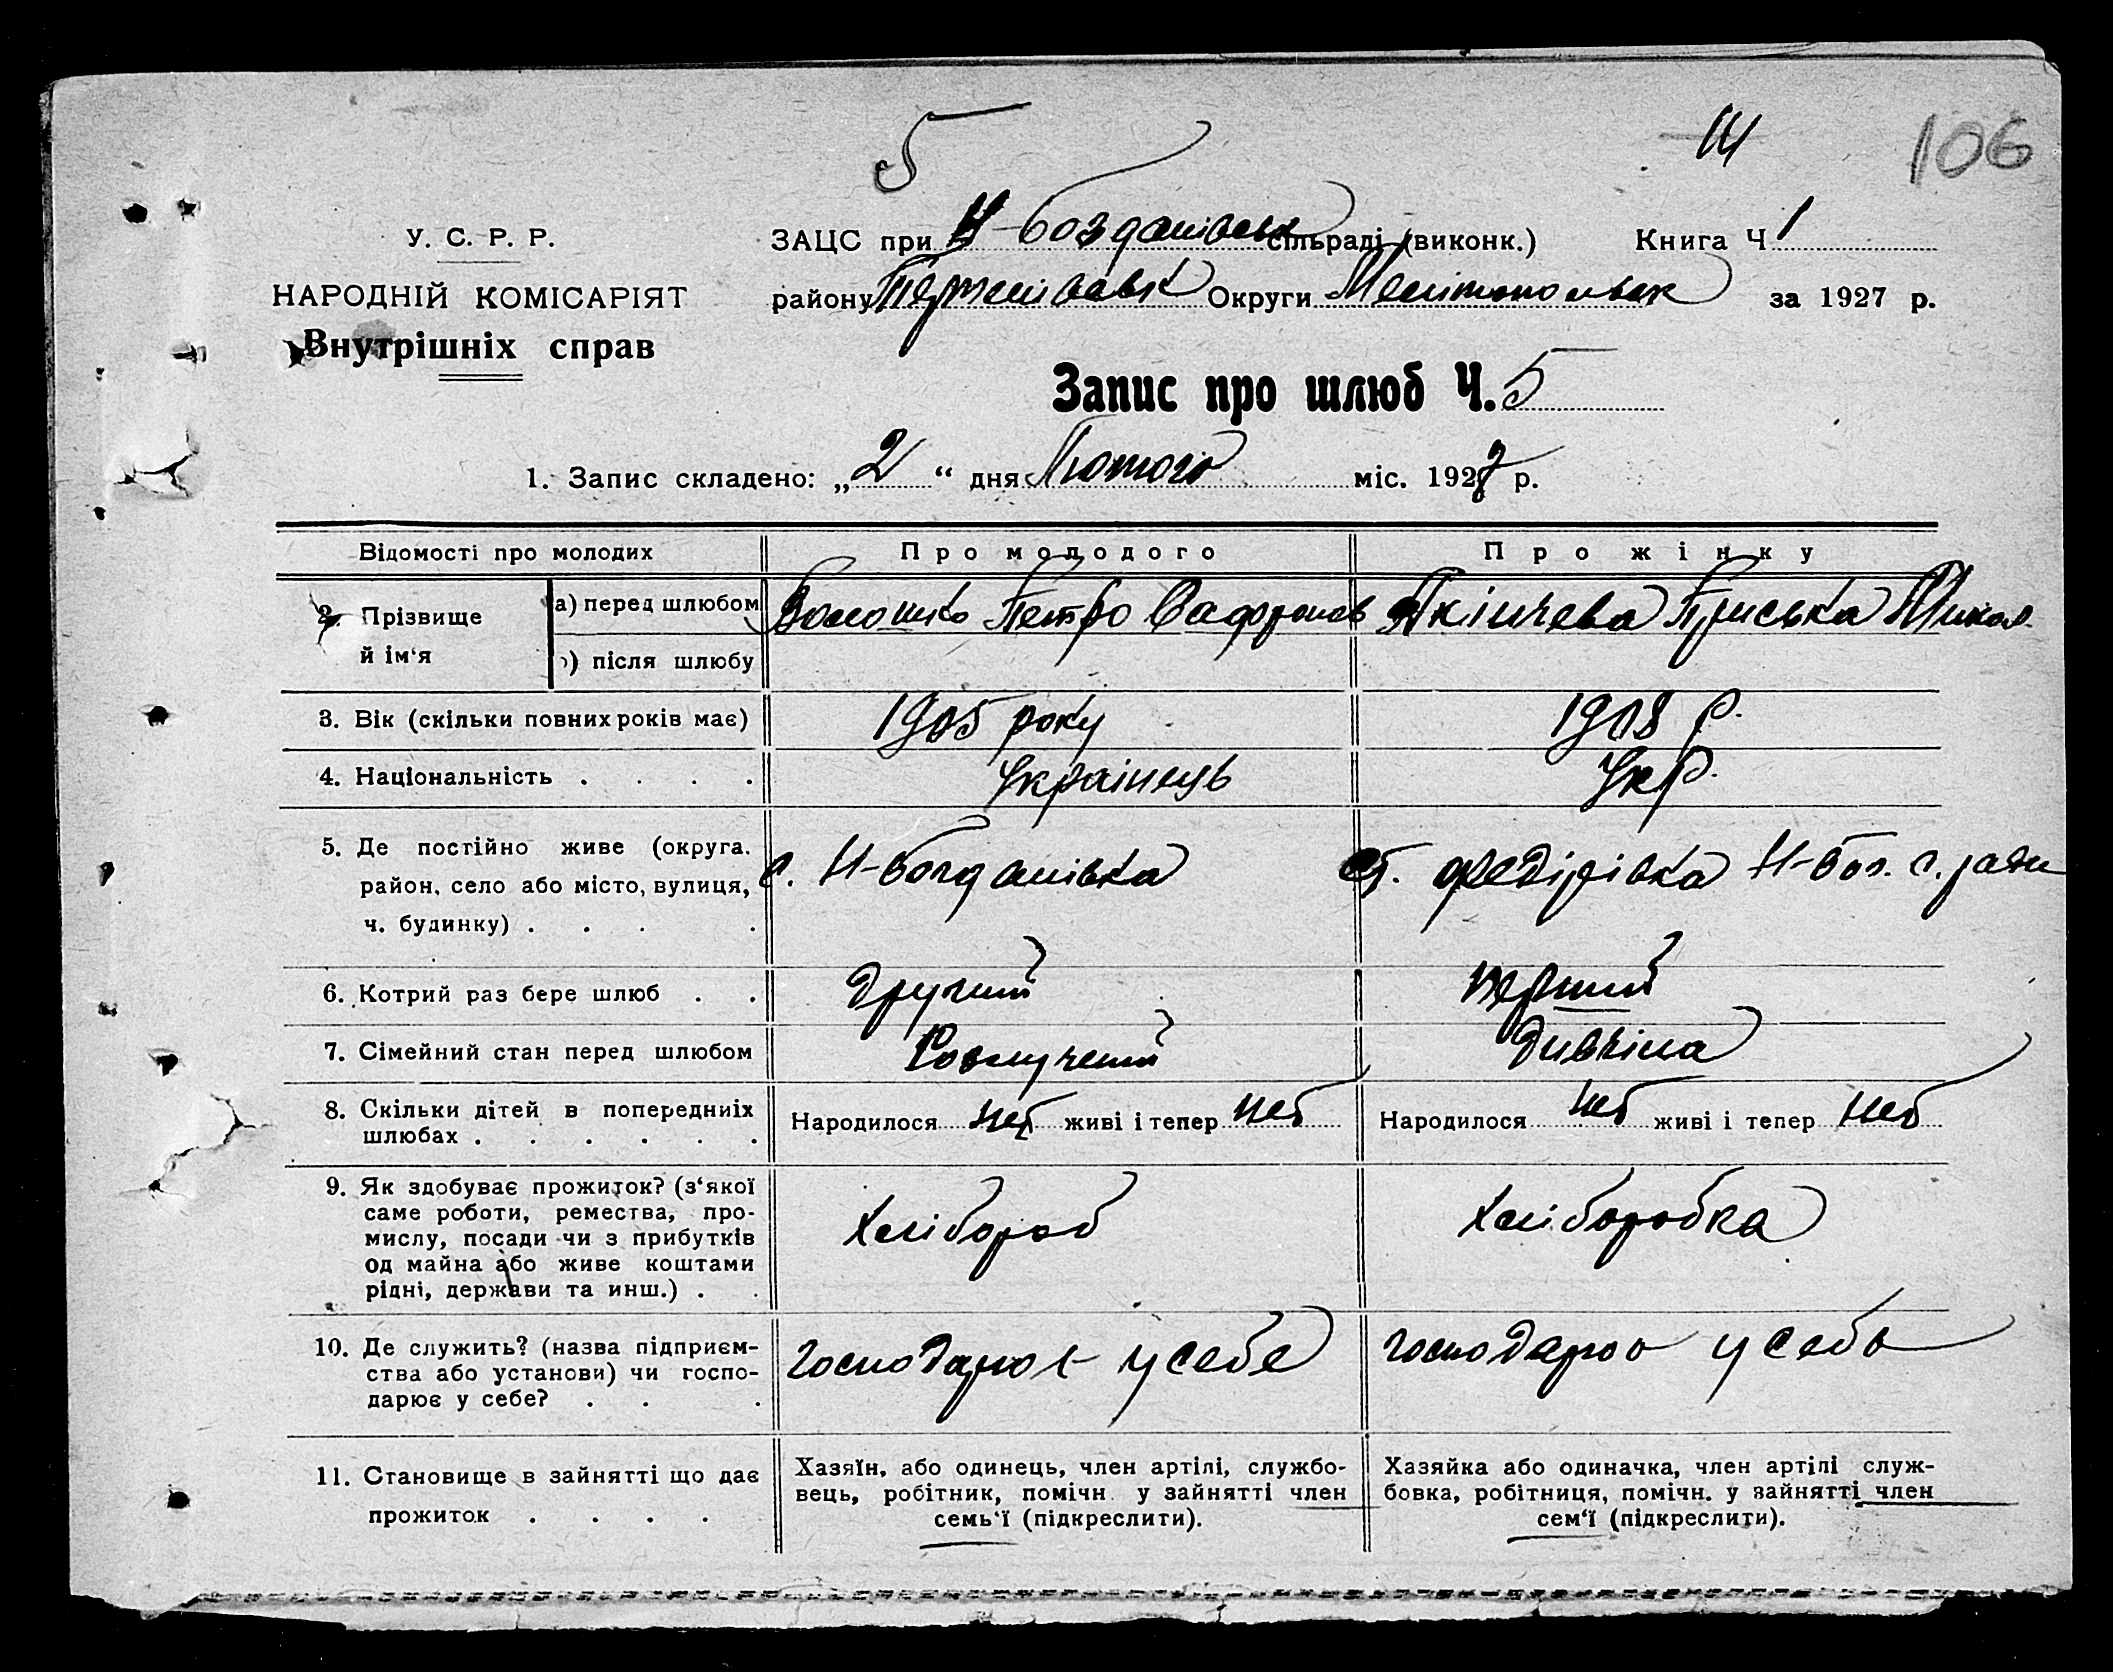 5
14
106
У. С. Р. Р.
НАРОДНІЙ КОМІСАРІЯТ
Внутрішніх справ
ЗАЦС при Н-богданівськ сільраді (виконк.) Книга Ч 1
району Округи Мелітопольск за 1927 р.
Запис про шлюб Ч. 5
1. Запис складено: „2“ дня Лютого міс. 1927 р.
Відомості про молодих
Про молодого
Про жінку
2. Прізвище й ім'я
а) перед шлюбом
Петро Сафронов
Приська Микол.
б) після шлюбу
3. Вік (скільки повних років має)
1905 року
1908 р.
4. Національність . . . .
Українець
Укр.
5. Де постійно живе (округа.
район, село або місто, вулиця,
ч. будинку) . . . .
с. Н-богданівка
федірівка Н-бог. с. ради
6. Котрий раз бере шлюб . .
другий
перший
7. Сімейний стан перед шлюбом
Розлучений
дивчіна
8. Скільки дітей в попередниіх
шлюбах . . . . . .
Народилося неб живі і тепер неб
Народилося неб живі і тепер неб
9. Як здобуває прожиток? (з'якої
саме роботи, ремества, про-
мислу, посади чи з прибутків
од майна або живе коштами
рідні, держави та инш.) . .
Хлібороб
Хліборобка
10. Де служить? (назва підприєм-
ства або установи) чи госпо-
дарює у себе? . . .
господарює у себе
господарює у себе
11. Становище в зайнятті що дає
прожиток . . . .
Хазяїн, або одинець, член артілі, службо-
вець, робітник, помічн. у зайнятті член
семь'ї (підкреслити).
Хазяйка або одиначка, член артілі служ-
бовка, робітниця, помічн. у зайнятті член
сем'ї (підкреслити).